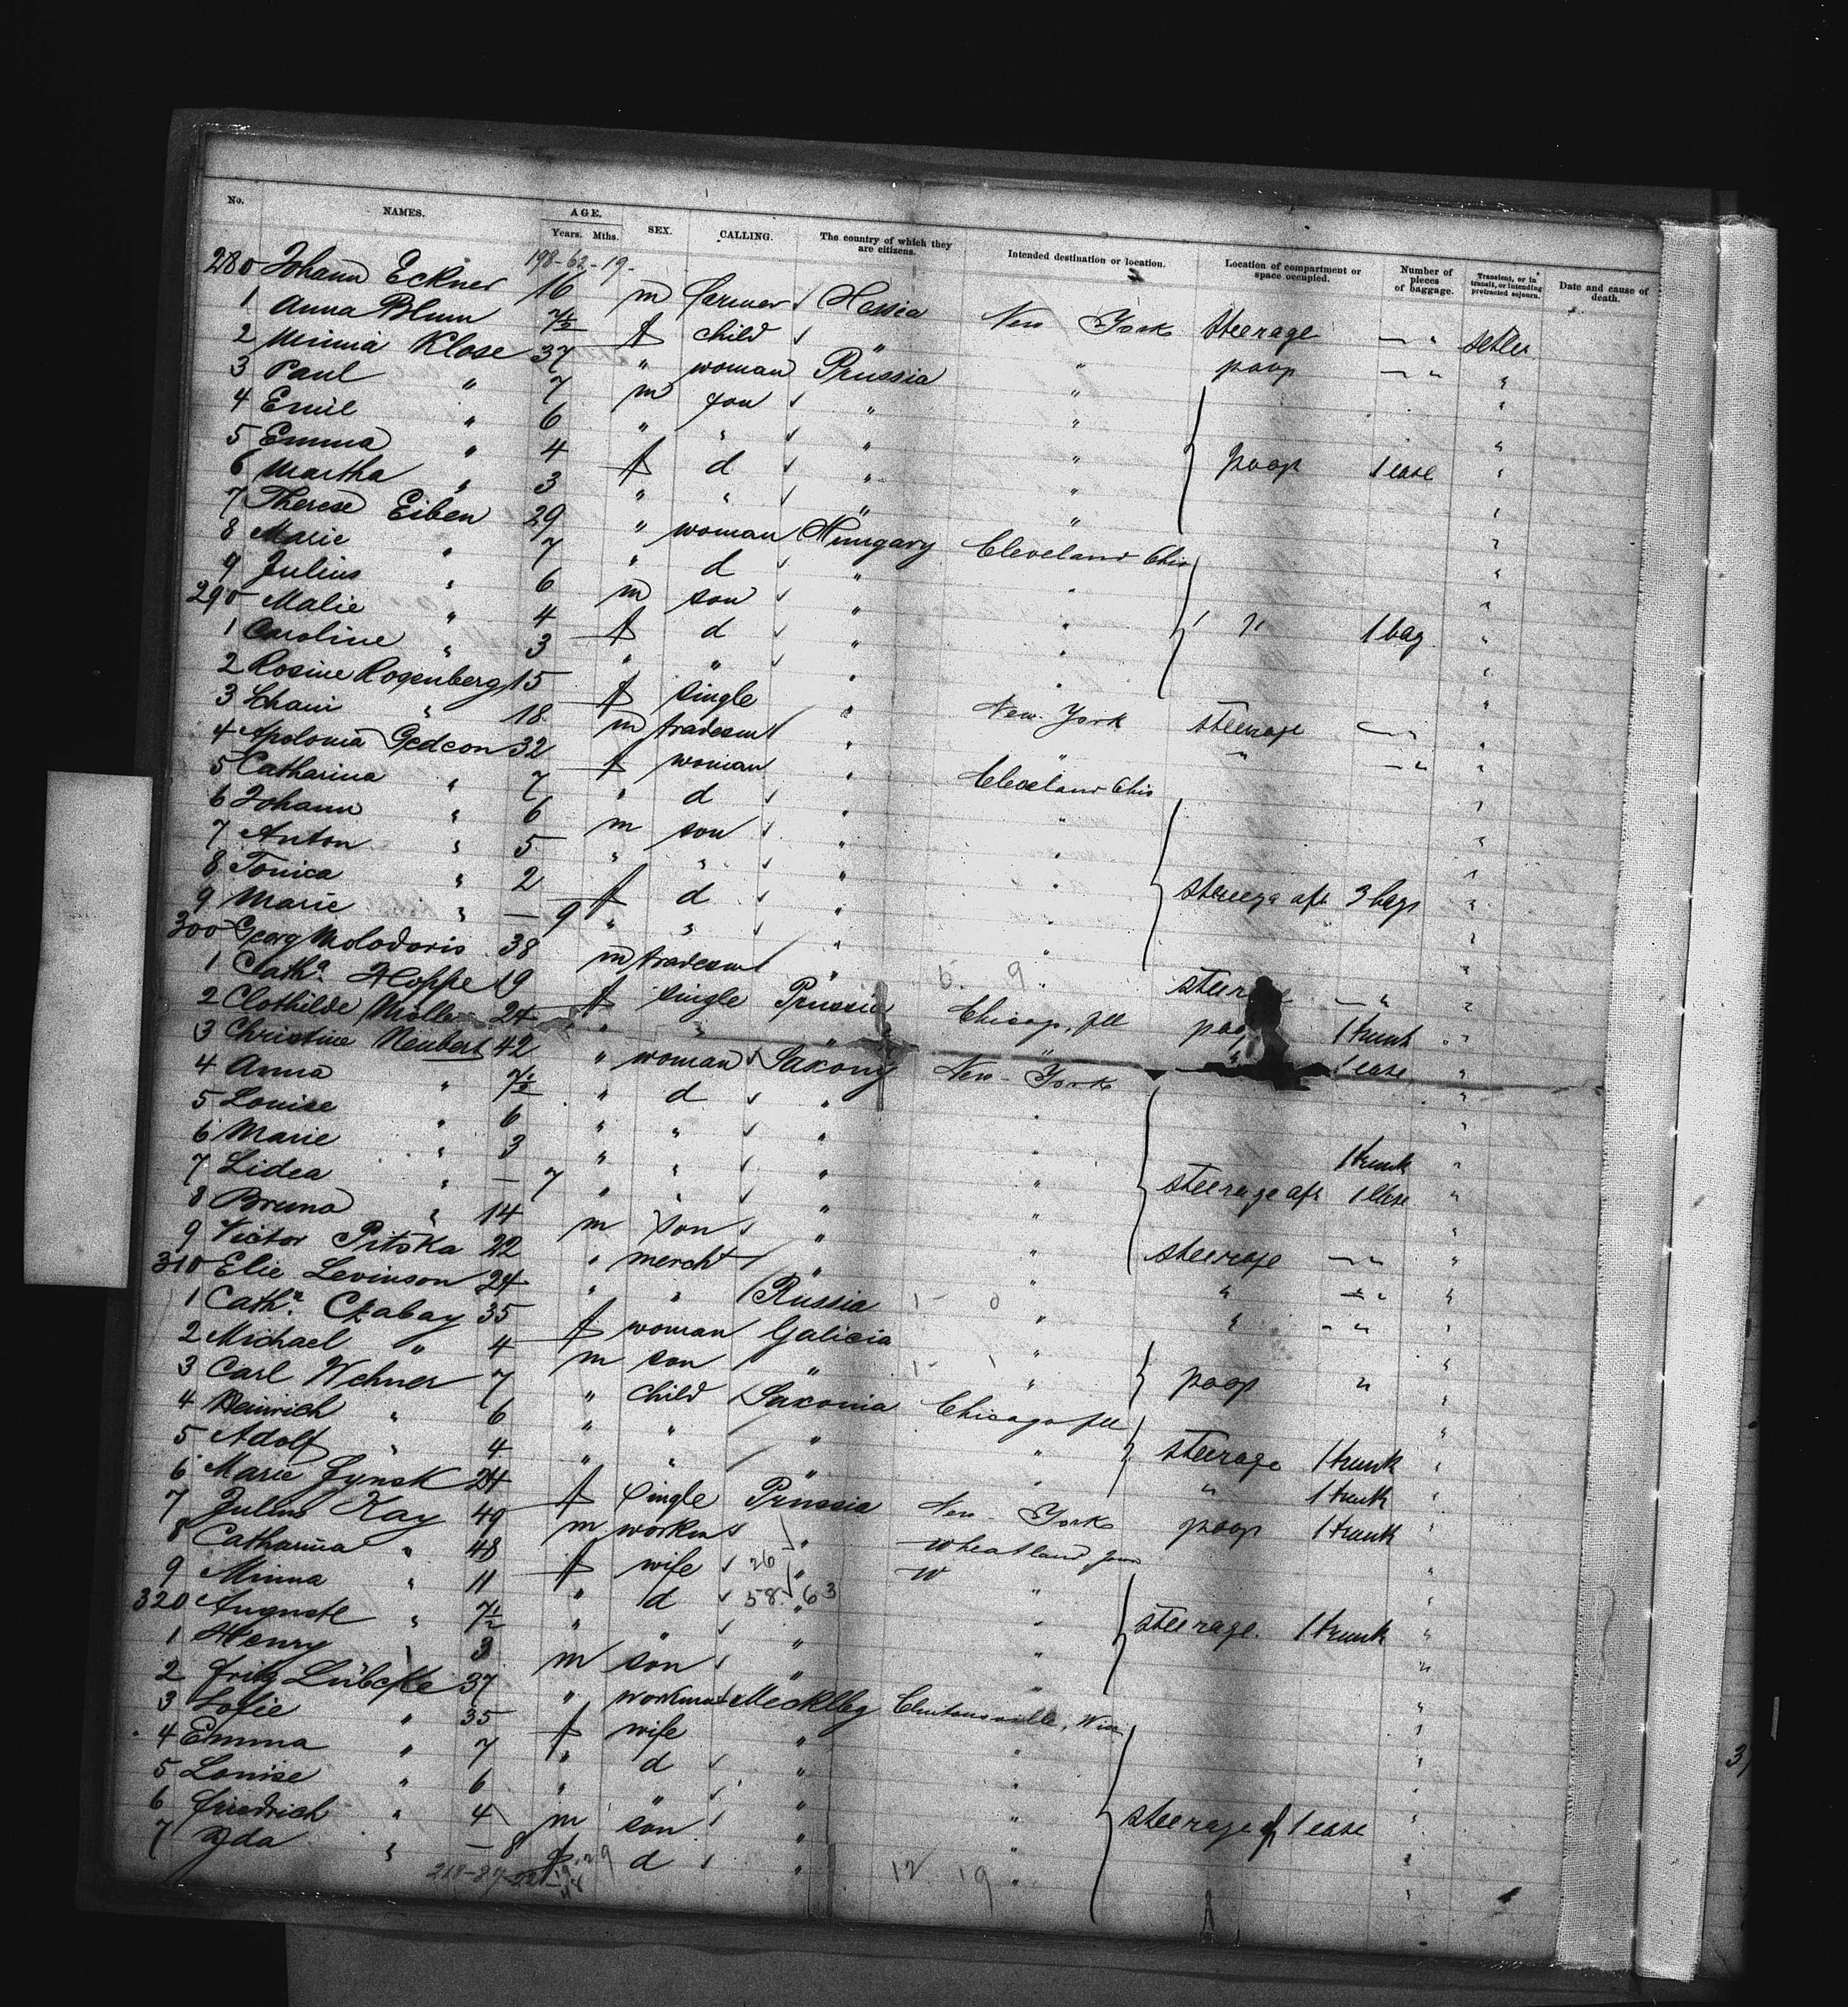 No. NAMES. AGE. Years. Mths. SEX. CALLING. The country of which they are citizens. Intended destination or location. Location of compartment or space occupied. Number of pieces of baggage. Transient, or in transit, or intending protracted sojourn. Date and cause of death.
198-62-19-
280 Johann Eckner 16 m farmer Hessia New York Steerage — " settler
1 Anna Blum 7½ f child " " poop — " "
2 Minnia Klose 37 " woman Prussia " "
3 Paul " 7 m son " " "
4 Emil " 6 " " " " "
5 Emma " 4 f d " " poop 1 case "
6 Martha " 3 " " " " "
7 Therese Eiben 29 " woman Hungary Cleveland Ohio "
8 Marie " 7 " d " " "
9 Julius " 6 m son " " "
290 Malie " 4 f d " " " 1 bag "
1 Caroline " 3 " " " " "
2 Rosine Rosenberg 15 f single " New York steerage — "
3 Chain " 18 m tradesm " " " — " "
4 Apolonia Gedeon 32 f woman " Cleveland Ohio "
5 Catharina " 7 " d " " "
6 Johann " 6 m son " " "
7 Anton " 5 " " " " "
8 Tonica " 2 f d " " steerage aft 3 bags "
9 Marie " — 9 " " " " "
300 Georg Molodoris 38 m tradesm " " steerage — " "
1 Catha Hoppe 19 f single Prussia Chicago, Ill poop 1 trunk "
2 Clothilde Moller 24 " " " " " 1 case "
3 Christine Neubert 42 " woman Saxony New-York "
4 Anna " 7½ " d " " "
5 Louise " 6 " " " " 1 trunk "
6 Marie " 3 " " " " steerage aft 1 case "
7 Lidea " — 7 " " " " "
8 Bruno " 14 m son " " "
9 Victor Pitska 22 " mercht " " steerage — " "
310 Elie Levinson 24 " " Russia " " — " "
1 Catha Czabay 35 f woman Galicia " "
2 Michael " 4 m son " " poop " "
3 Carl Wehner 7 " child Saxonia Chicago Ill "
4 Heinrich " 6 " " " " steerage 1 trunk "
5 Adolf " 4 " " " " "
6 Marie Synok 24 f single Prussia New-York poop 1 trunk "
7 Julius Kay 49 m workm " Wheatland "
8 Catharina " 48 f wife 26 " " "
9 Minna " 11 " d 58 63 " "
320 Auguste " 7½ " " " " steerage. 1 trunk "
1 Henry " 3 m son " " "
2 Fritz Lübcke 37 " workman Mecklbg Clintonsville, Wis "
3 Sofie " 35 f wife " " "
4 Emma " 7 " d " " "
5 Louise " 6 " " " " "
6 Friedrich " 4 m son " " steerage af 1 case "
7 Ida " — 8 f d " " "
12 19